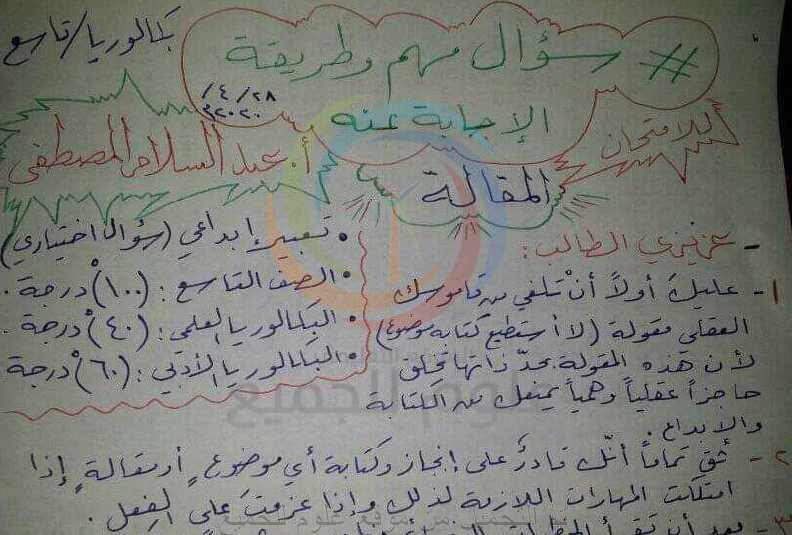 بكالوريا/تاسع
# سؤال مهم وطريقة
الإجابة عنه
٢٨ / ٤ /
٢٠٢٠م
للامتحان
أ. عبد السلام المصطفى
المقالة
• تعبير إبداعي (سؤال اختياري)
• الصف التاسع : (١٠٠) درجة .
• البكالوريا العلمي : (٤٠) درجة .
• البكالوريا الأدبي : (٦٠) درجة
- عزيزي الطالب :
١- عليك أولاً أنْ تلغي من قاموسك
العقلي مقولة (لا أستطيع كتابة موضوع)
لأن هذه المقولة بحدّ ذاتها تخلق
حاجزاً عقلياً وهمياً يمنعك من الكتابة
والإبداع .
٢- ثق تماماً أنّك قادرٌ على إنجاز وكتابة أي موضوعٍ أو مقالةٍ إذا
امتلكت المهارات اللازمة لذلك وإذا عزمتَ على الفعل .
٣- بعد أن تقرأ
علوم للجميع
تم التحميل من موقع علوم للجميع